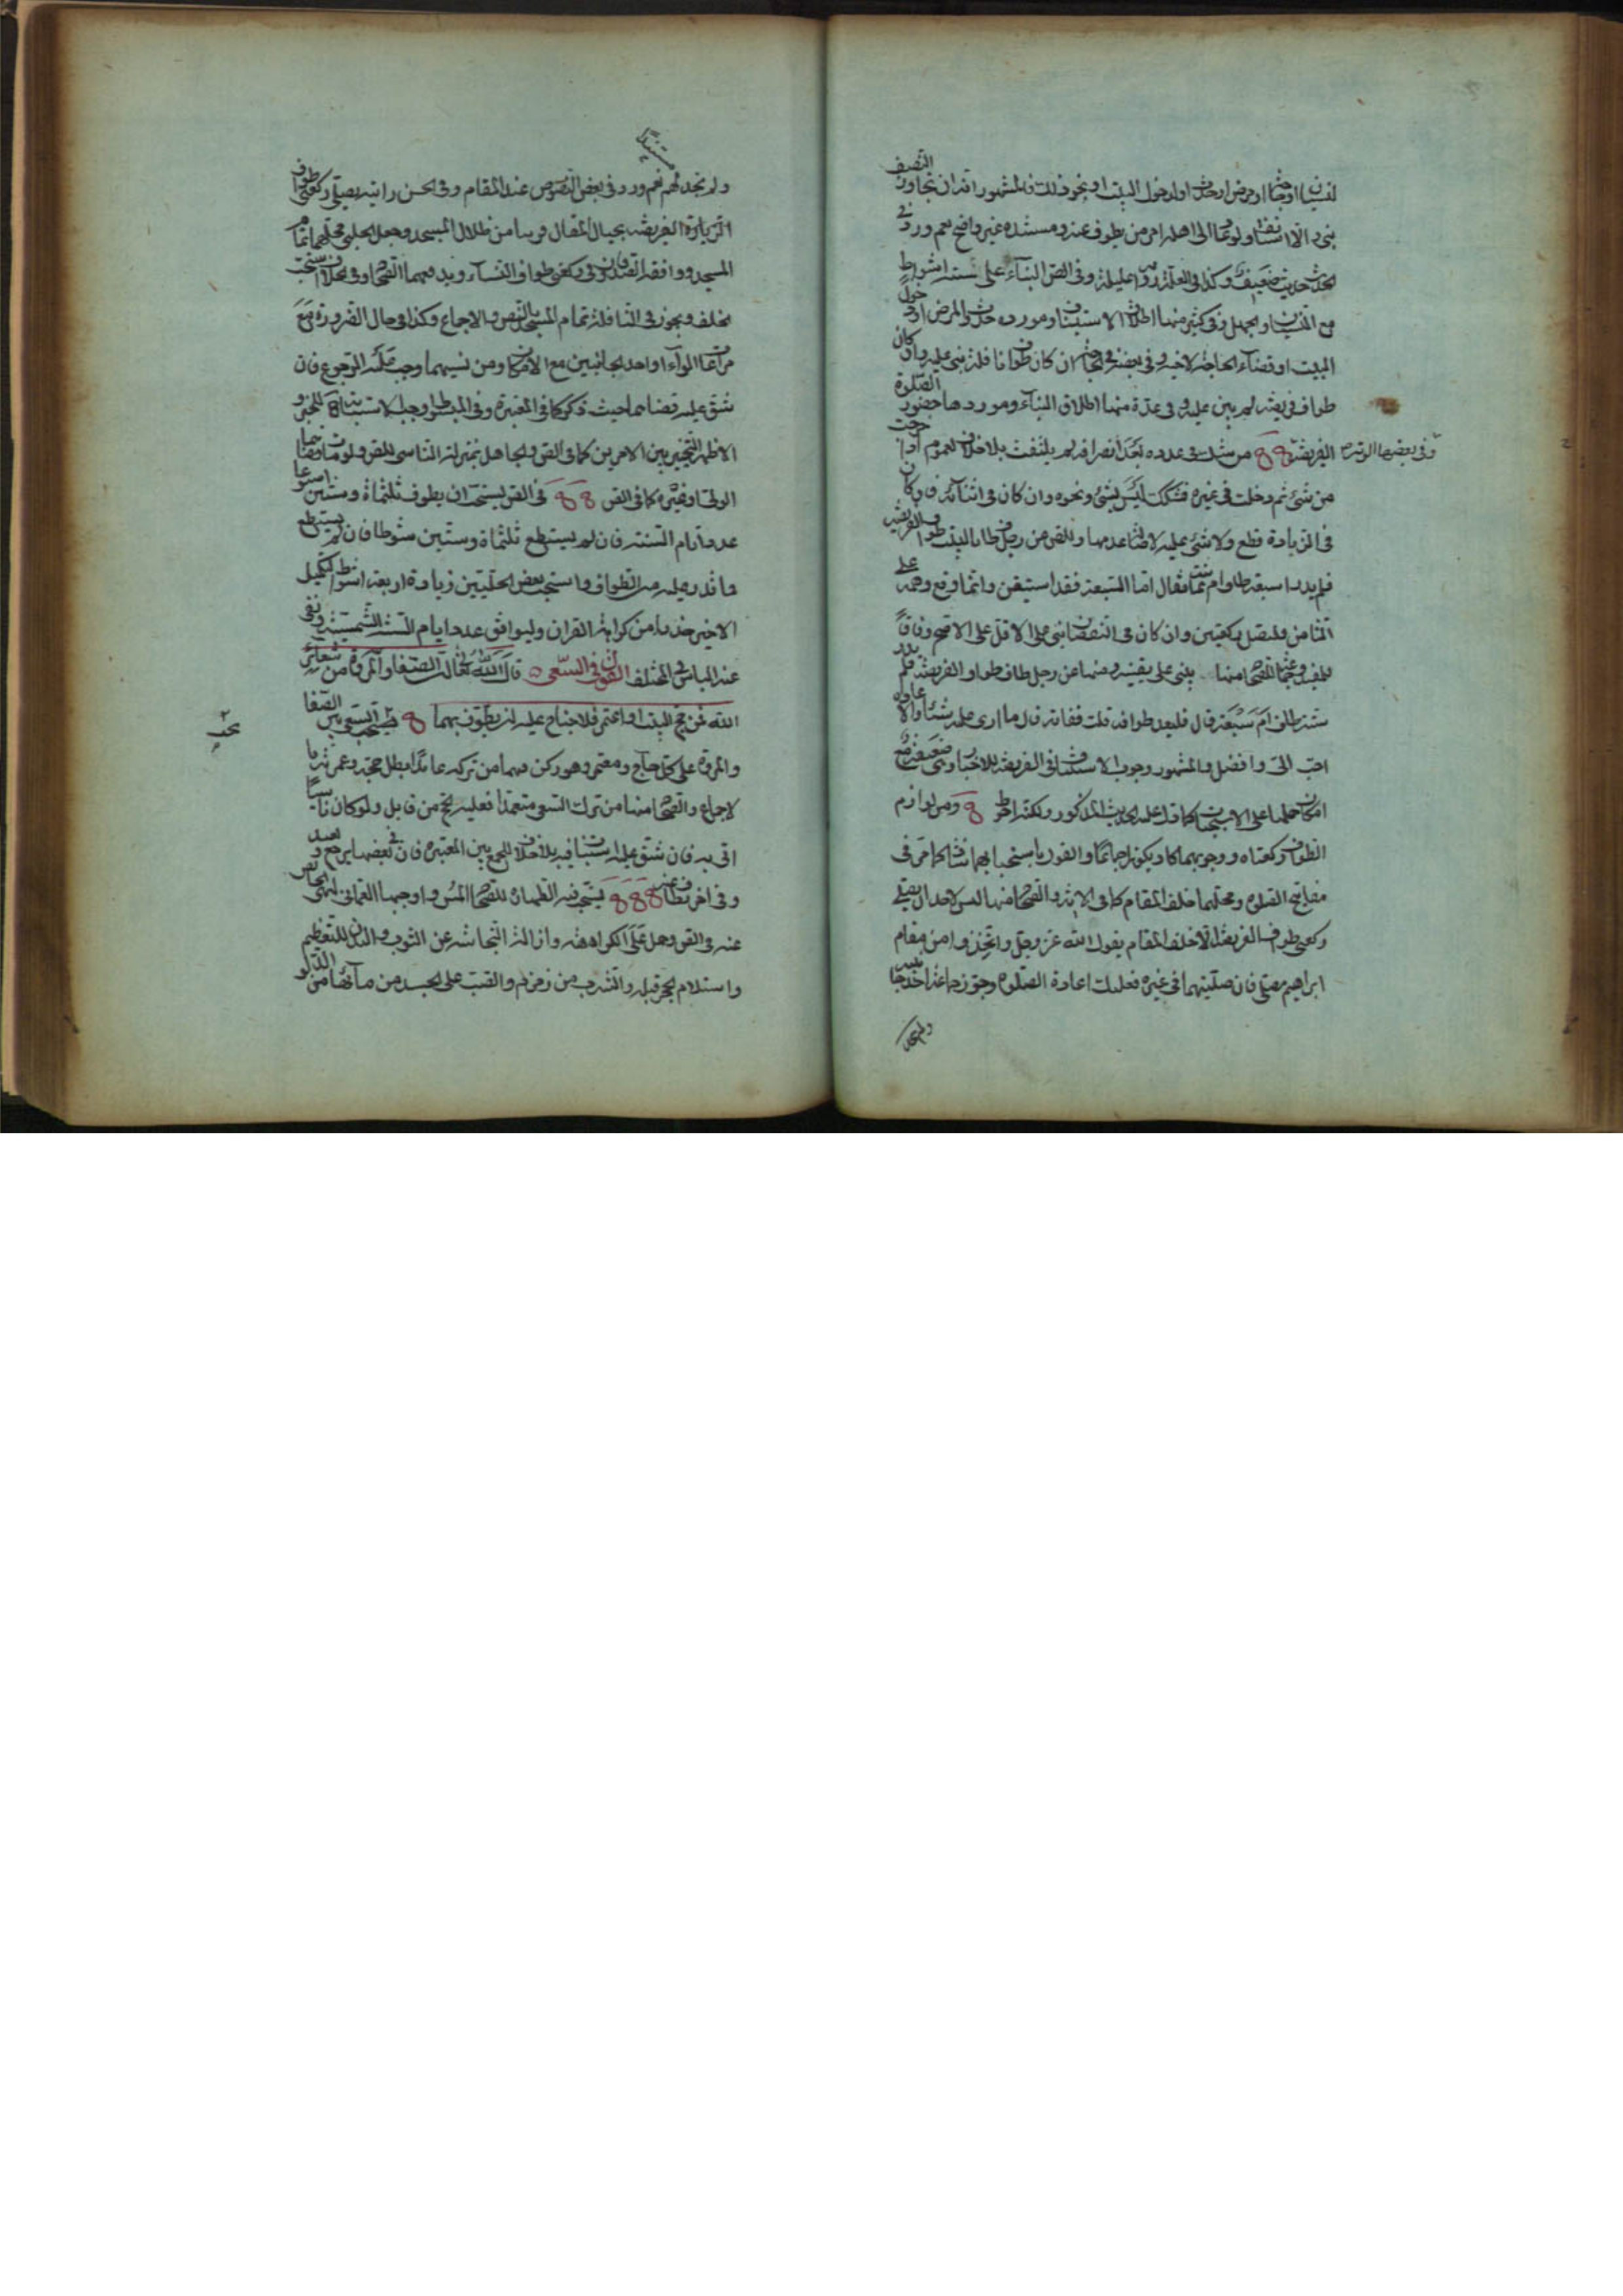 لنسيان او
بنى والا استأنف ولو عاد الى اهله امر من يطوف عنه ومستنده غير واضح نعم ورد في
الحدث حديث ضعيف وكذا في العلة وفي الصحيح البناء على ستة اشواط
مع النسيان او الجهل وفي كثير منها اطلاق الاستيناف ومورده حدث المرض او دخول
البيت او قضاء الحاجة لاخيه وفي بعضه ان كان طواف نافلة بنى عليه وان كان
طواف فريضة لم يبن عليه وفي عدة منها اطلاق البناء وموردها حضور الصلوة
وفي بعضها الوتر
الفريضة من شك في عدده بعد انصرافه لم يلتفت بلا خلاف لعموم اذا خرجت
من شئ ثم دخلت في غيره فشكك ليس بشئ ونحوه وان كان في اثنائه فان كان
في الزيادة قطع ولا شئ عليه لاصالة عدمها وللص من رجل طاف بالبيت طواف الفريضة
فلم يدر اسبعة طاف ام ثمانية فقال اما السبعة فقد استيقن وانما وقع وهمه على
الثامن فليصل ركعتين وان كان في النقصان بنى على الاقل على الاصح وفاقا
للمفيد وغيره للصحاح منها يبنى على يقينه ومنها عن رجل طاف طواف الفريضة فلم يدر
ستة طاف ام سبعة قال فليعد طوافه قلت ففاته قال ما ارى عليه شيئا والاعادة
احب الى وافضل والمشهور وجوب الاستيناف في الفريضة للاخبار وهي ضعيفة مع
امكان حملها على الاستحباب كما دل عليه الحديث المذكور ولكنه احوط ومن لوازم
الطواف ركعتاه ووجوبهما كاد يكون اجماعا والقول باستحبابهما شاذ كما مر في
مفاتيح الصلوة ومحلهما خلف المقام كما في الاية والصحاح منها ليس لاحد ان يصلى
ركعتى طواف الفريضة الا خلف المقام بقول الله عز وجل واتخذوا من مقام
ابراهيم مصلى فان صليتهما في غيره فعليك اعادة الصلوة وجوزهما عند احد جانبيه
ولم نجد
ولم نجد لهم نعم ورد في بعض النصوص عند المقام وفي الحسن رايته يصلى ركعتى طواف
مستندا
الزيارة الفريضة بحيال المقام قريبا من ظلال المسجد وجعل الحلبي محلهما تمام
المسجد ووافقه الصدوقان في ركعتى طواف النساء ويدفعهما الصحاح وفي الخلاف يستحب
خلف ويجوز في النافلة تمام المسجد بالنص والاجماع وكذا في حال الضرورة مع
مراعاة الوراء او احد الجانبين مع الامكان ومن نسيهما وجب عليه الرجوع فان
شق عليه قضاهما حيث ذكر كما في المعتبرة وفي المبسوط اوجب الاستنابة للخبر و
الاظهر التخيير بين الامرين كما في الص والجاهل بمنزلة الناسى للص ولو مات قضاهما
الولى او غيره كما في الص في الص يستحب ان يطوف ثلثمائة وستين اسبوعا
عدد ايام السنة فان لم يستطع ثلثمائة وستين شوطا فان لم يستطع
ما قدر عليه من الطواف واستحب بعض الحلبيين زيادة اربعة اشواط لتكميل
الاخير حذرا من كراهة القران وليوافق عدد ايام السنة الشمسية ونفى
عنه الباس في المختلف القول في السعى قال الله تعالى ان الصفا والمروة من شعائر
الله فمن حج البيت او اعتمر فلا جناح عليه ان يطوف بهما يجب السعى بين الصفا
والمروة على كل حاج ومعتمر وهو ركن فيهما من تركه عامدا بطل حجه وعمرته بالا
لاجماع والصحاح منها من ترك السعى متعمدا فعليه الحج من قابل ولو كان ناسيا
اتى به فان شق عليه استناب فيه بلا خلاف للجمع بين المعتبرة فان في بعضها يرجع ويعيد
وفي اخر يطاف عنه يستحب فيه الطهارة للصحاح المس واوجبها العمانى لنهى الحائض
عنه في الص وحمل على الكراهة وازالة النجاسة عن الثوب والبدن للتعظيم
واستلام الحجر قبله والشرب من زمزم والصب على الجسد من مائها من الدلو